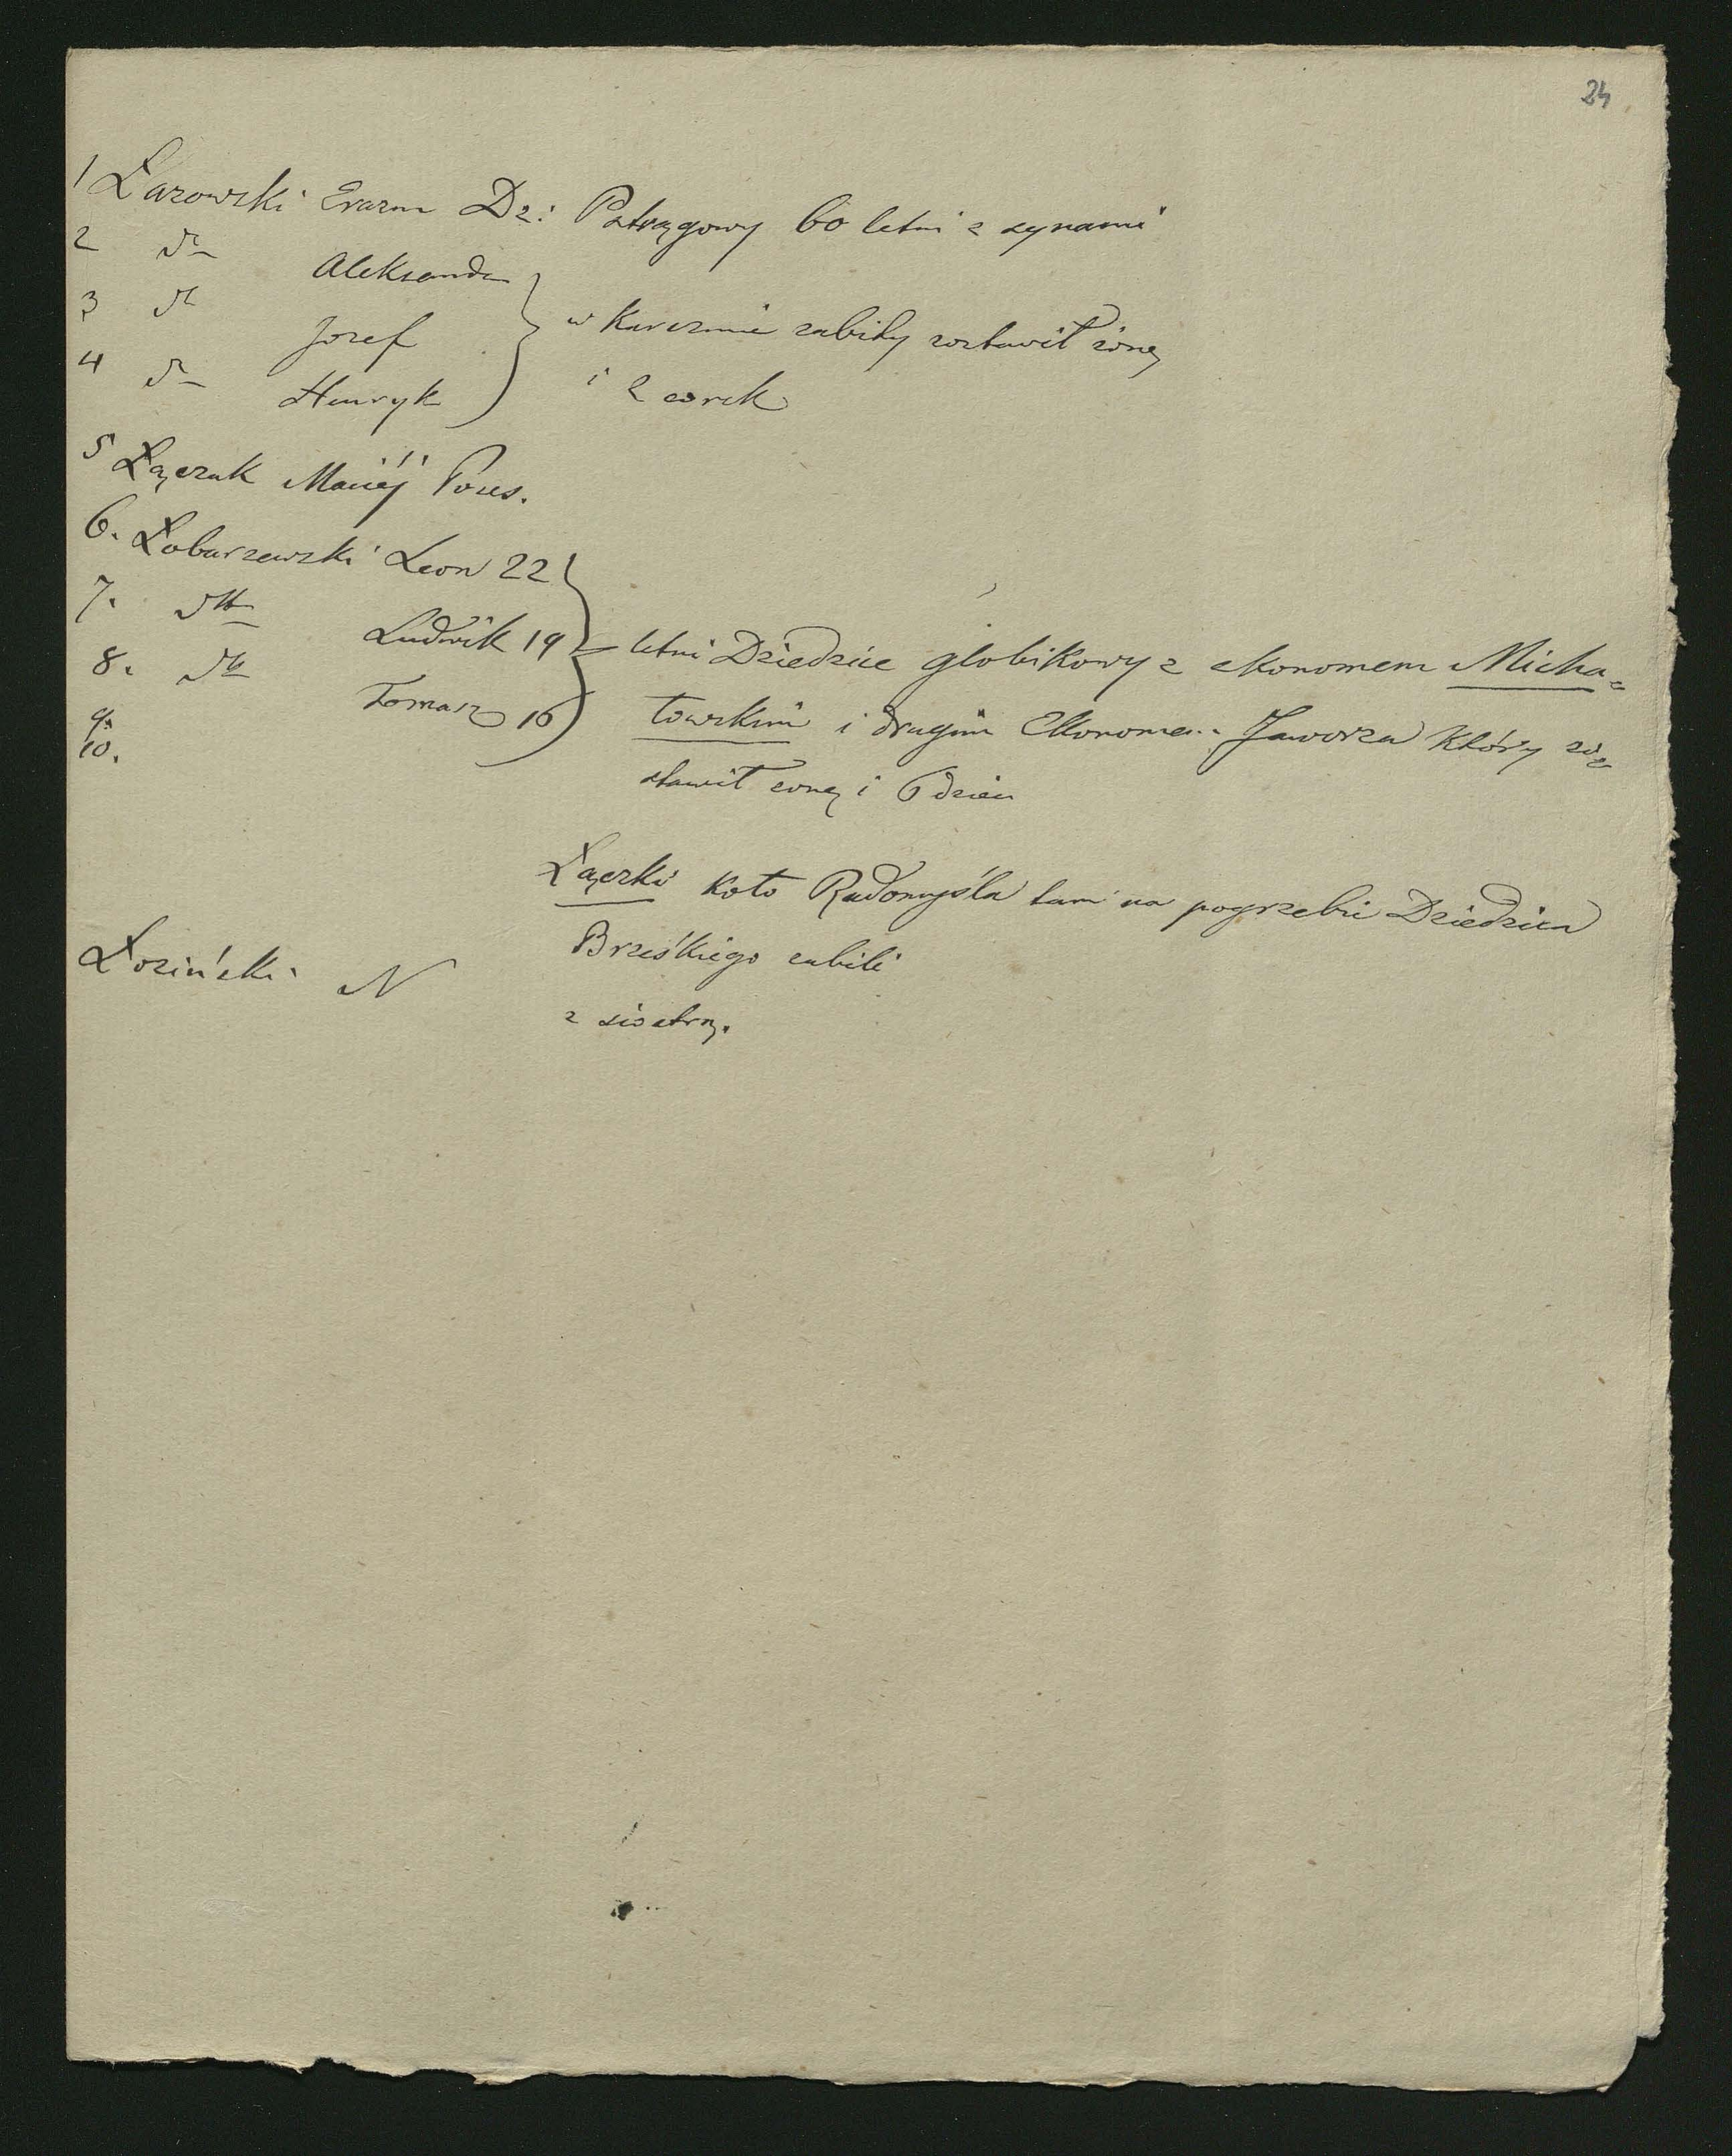 24
1 Łazowski Erazm Dz: Pstrągowy 60 letni z synami
2 dto Aleksander
3 dto Jozef } w karczmie zabity zostawił żonę
4 dto Henryk i 2 corek
5 Łączak Maciéj Poses.
6. Łobarzewski Leon 22
7. dtto Ludwik 19 } letni Dziedzice globikowy z ekonomem Micha=
8. dto Tomasz 16 łowskim i drugim Ekonomem Jaworza który zo=
9.
10. stawił żonę i 6 dzieci
Łączki koło Radomyśla tam na pogrzebie Dziedzica
Brześkiego zabili
Łoziński N z siostrą.